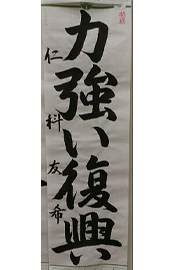 力強い復興
仁科友希